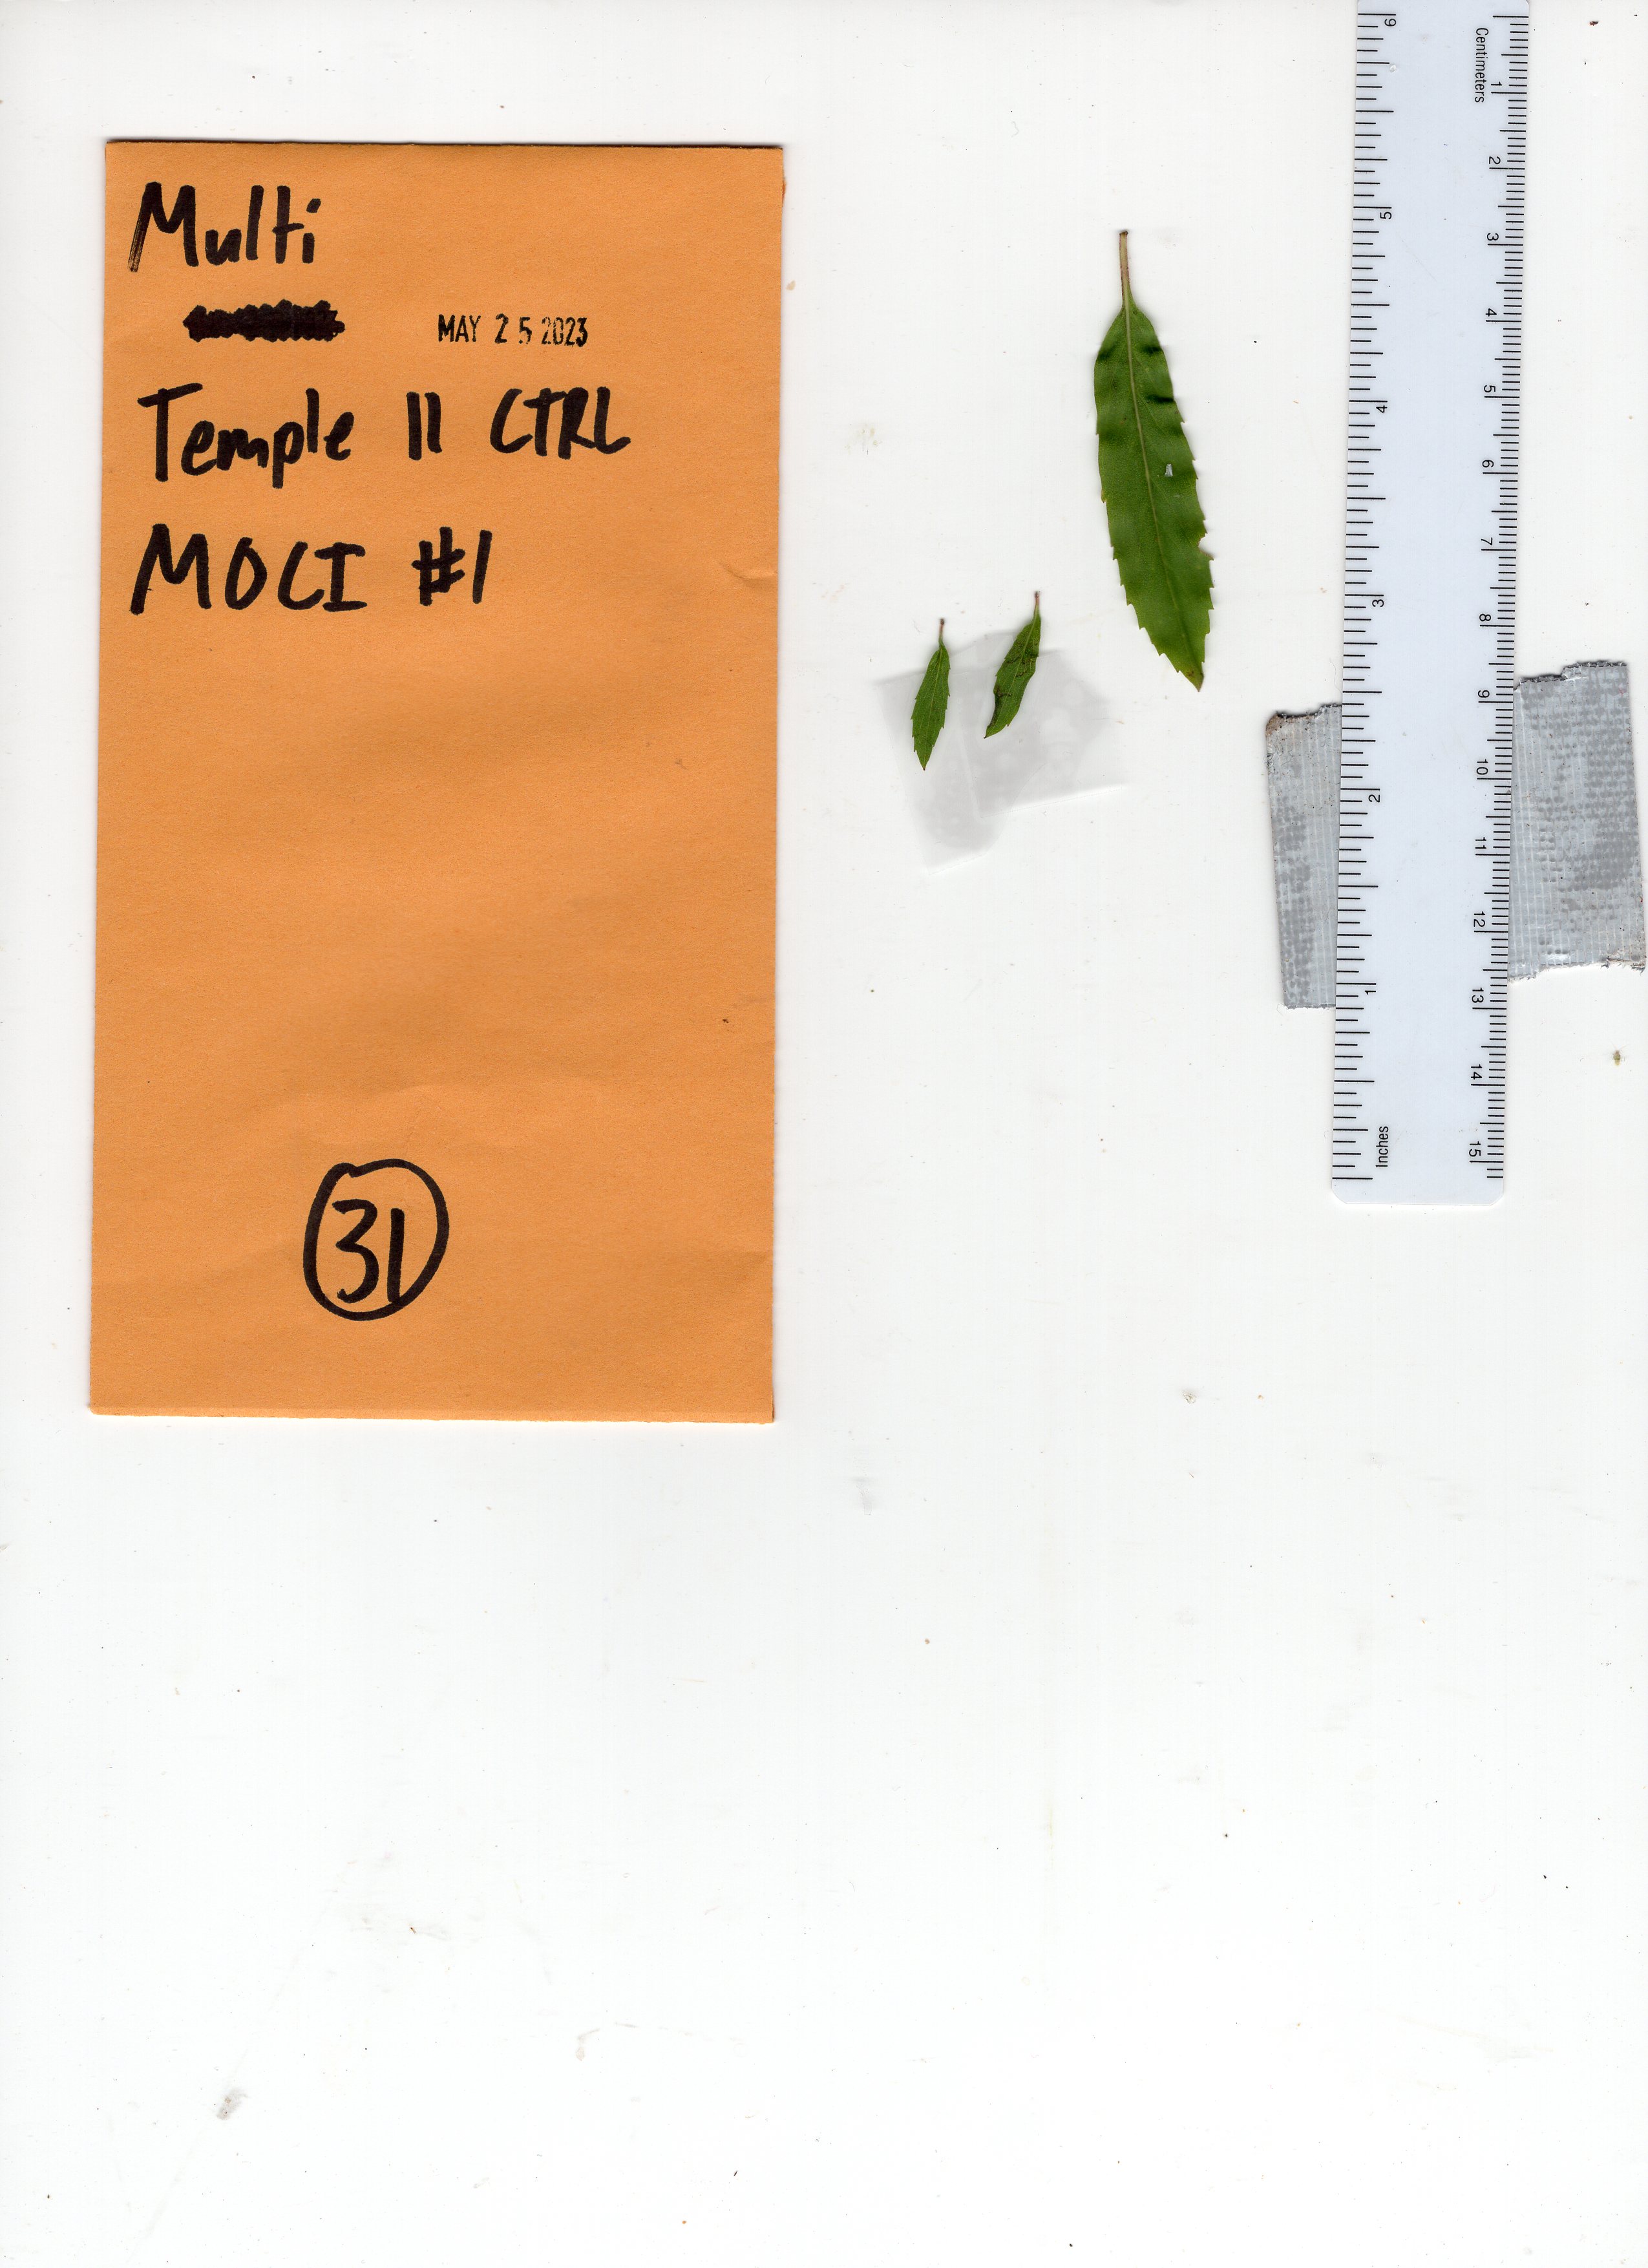 Multi
MAY 25 2023
Temple 11 CTRL
MOCI #1
31
Centimeters
1
2
3
4
5
6
7
8
9
10
11
12
13
14
15
6
5
4
3
2
1
Inches